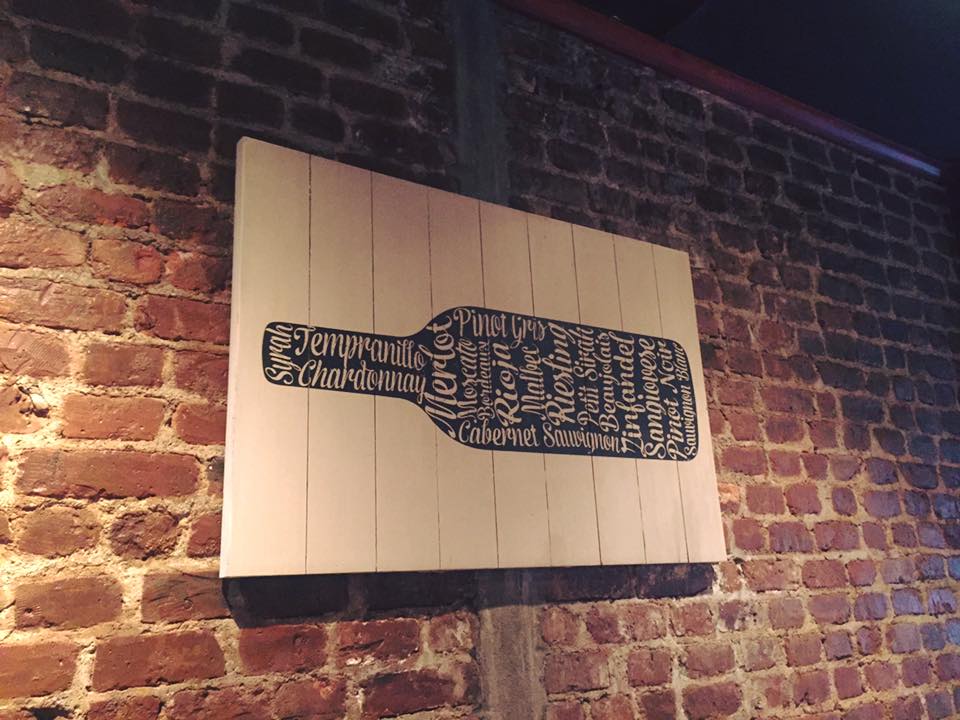 Syrah
Tempranillo
Chardonnay
Merlot
Pinot Gris
Moscato
Bordeaux
Rioja
Malbec
Riesling
Petit Sirah
Beaujolais
Zinfandel
Sangiovese
Pinot Noir
Sauvignon Blanc
Cabernet Sauvignon